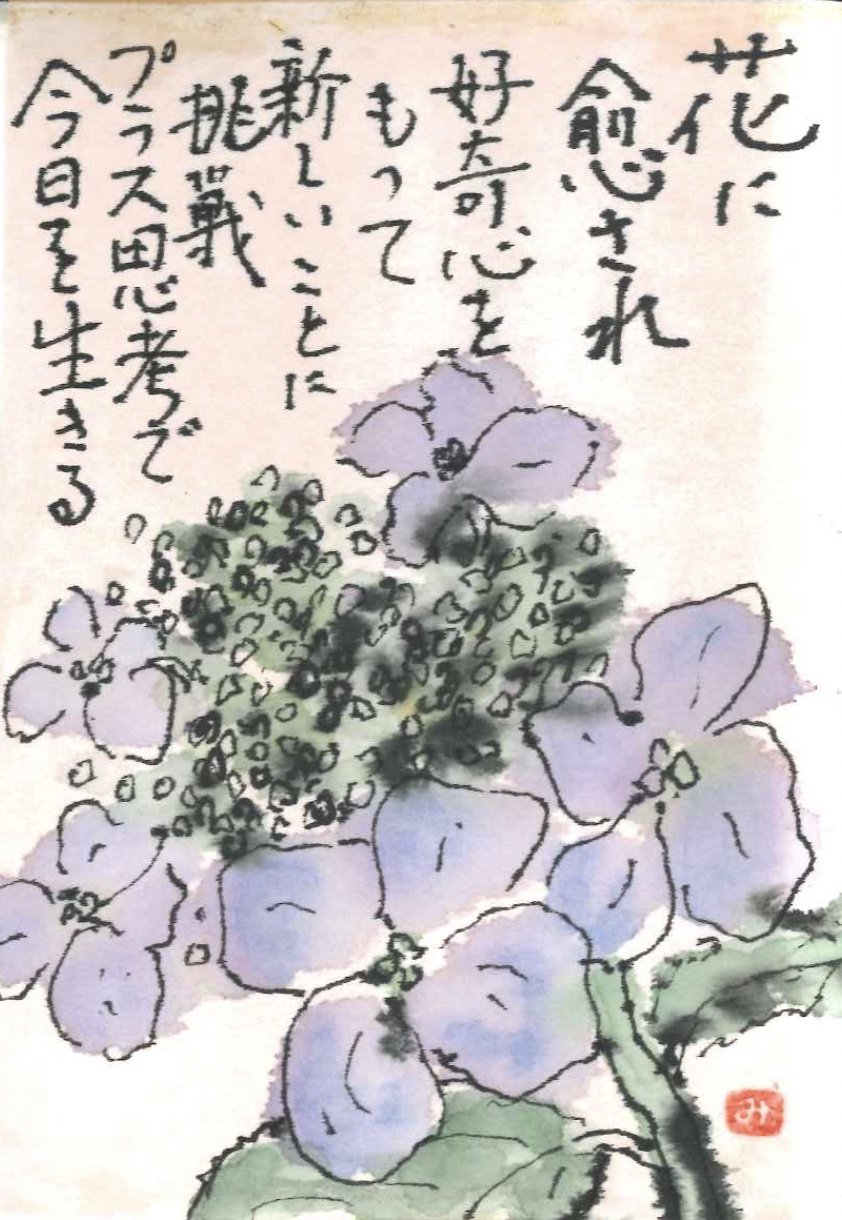 花に
愈され
好奇心を
もって
新しいことに
挑戦
プラス思考で
今日を生きる
み